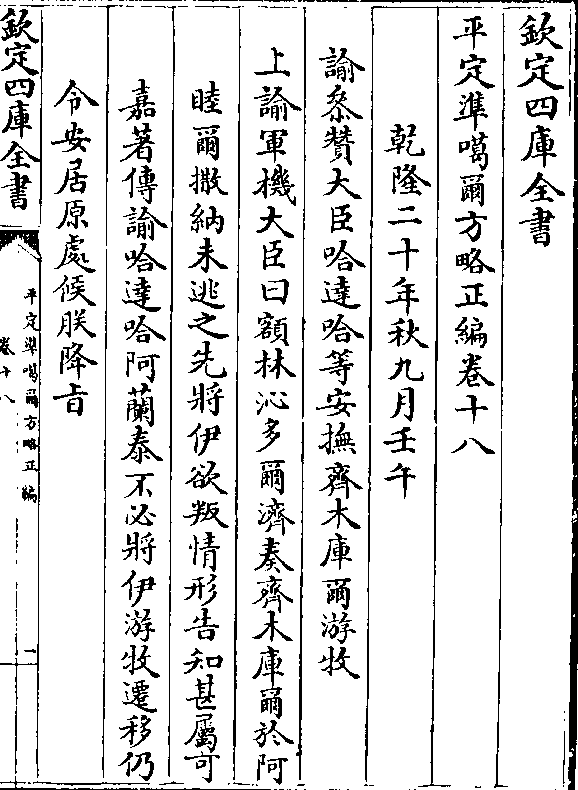 欽定四庫全書
平定準噶爾方略正編卷十八
乾隆二十年秋九月壬午
諭叅贊大臣哈達哈等安撫齊木庫爾游牧
上諭軍機大臣曰額林沁多爾濟奏齊木庫爾於阿
睦爾撒納未逃之先將伊欲叛情形告知甚屬可
嘉著傳諭哈達哈阿蘭泰不必將伊游牧遷移仍
令安居原處候朕降旨
欽定四庫全書
平定準噶爾方略正編
卷十八
一